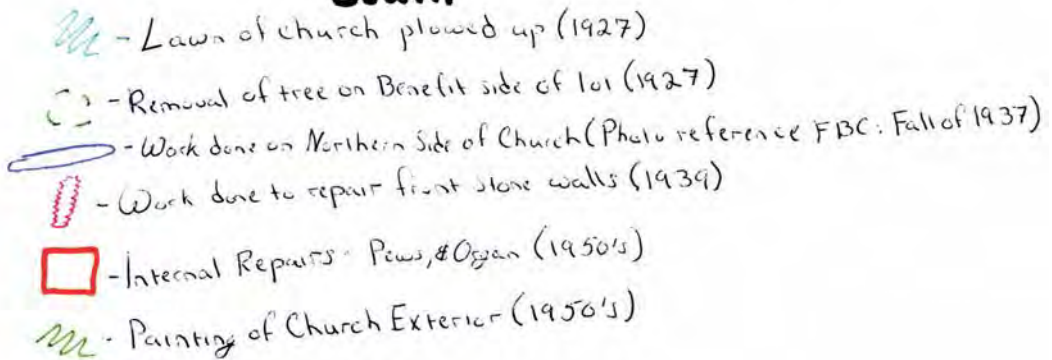 - Lawn of church plowed up (1927)
- Removal of tree on Benefit side of lot (1927)
- Work done on Northern Side of Church (Photo reference FBC: Fall of 1937)
- Work done to repair front stone walls (1939)
- Internal Repairs - Pews, & Organ (1950's)
- Painting of Church Exterior (1950's)